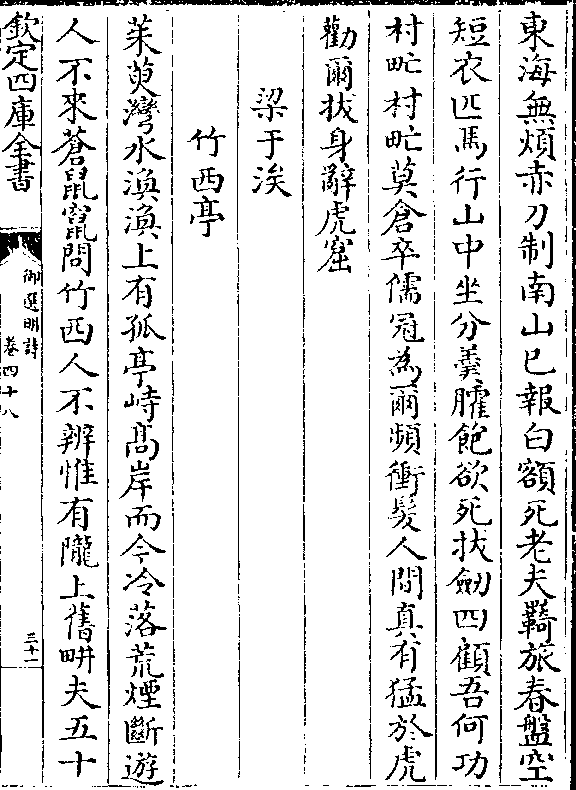 東海無煩赤刀制南山已報白額死老夫羇旅春盤空
短衣匹馬行山中坐分羹臛飽欲死拔劒四顧吾何功
村甿村甿莫倉卒儒冠為爾頻衝髮人間真有猛於虎
勸爾拔身辭虎窟
梁于涘
竹西亭
茱萸灣水渙渙上有孤亭峙髙岸而今冷落荒煙斷遊
人不來蒼鼠竄問竹西人不辨惟有隴上舊畊夫五十
欽定四庫全書
御選明詩
卷四十八
三十一